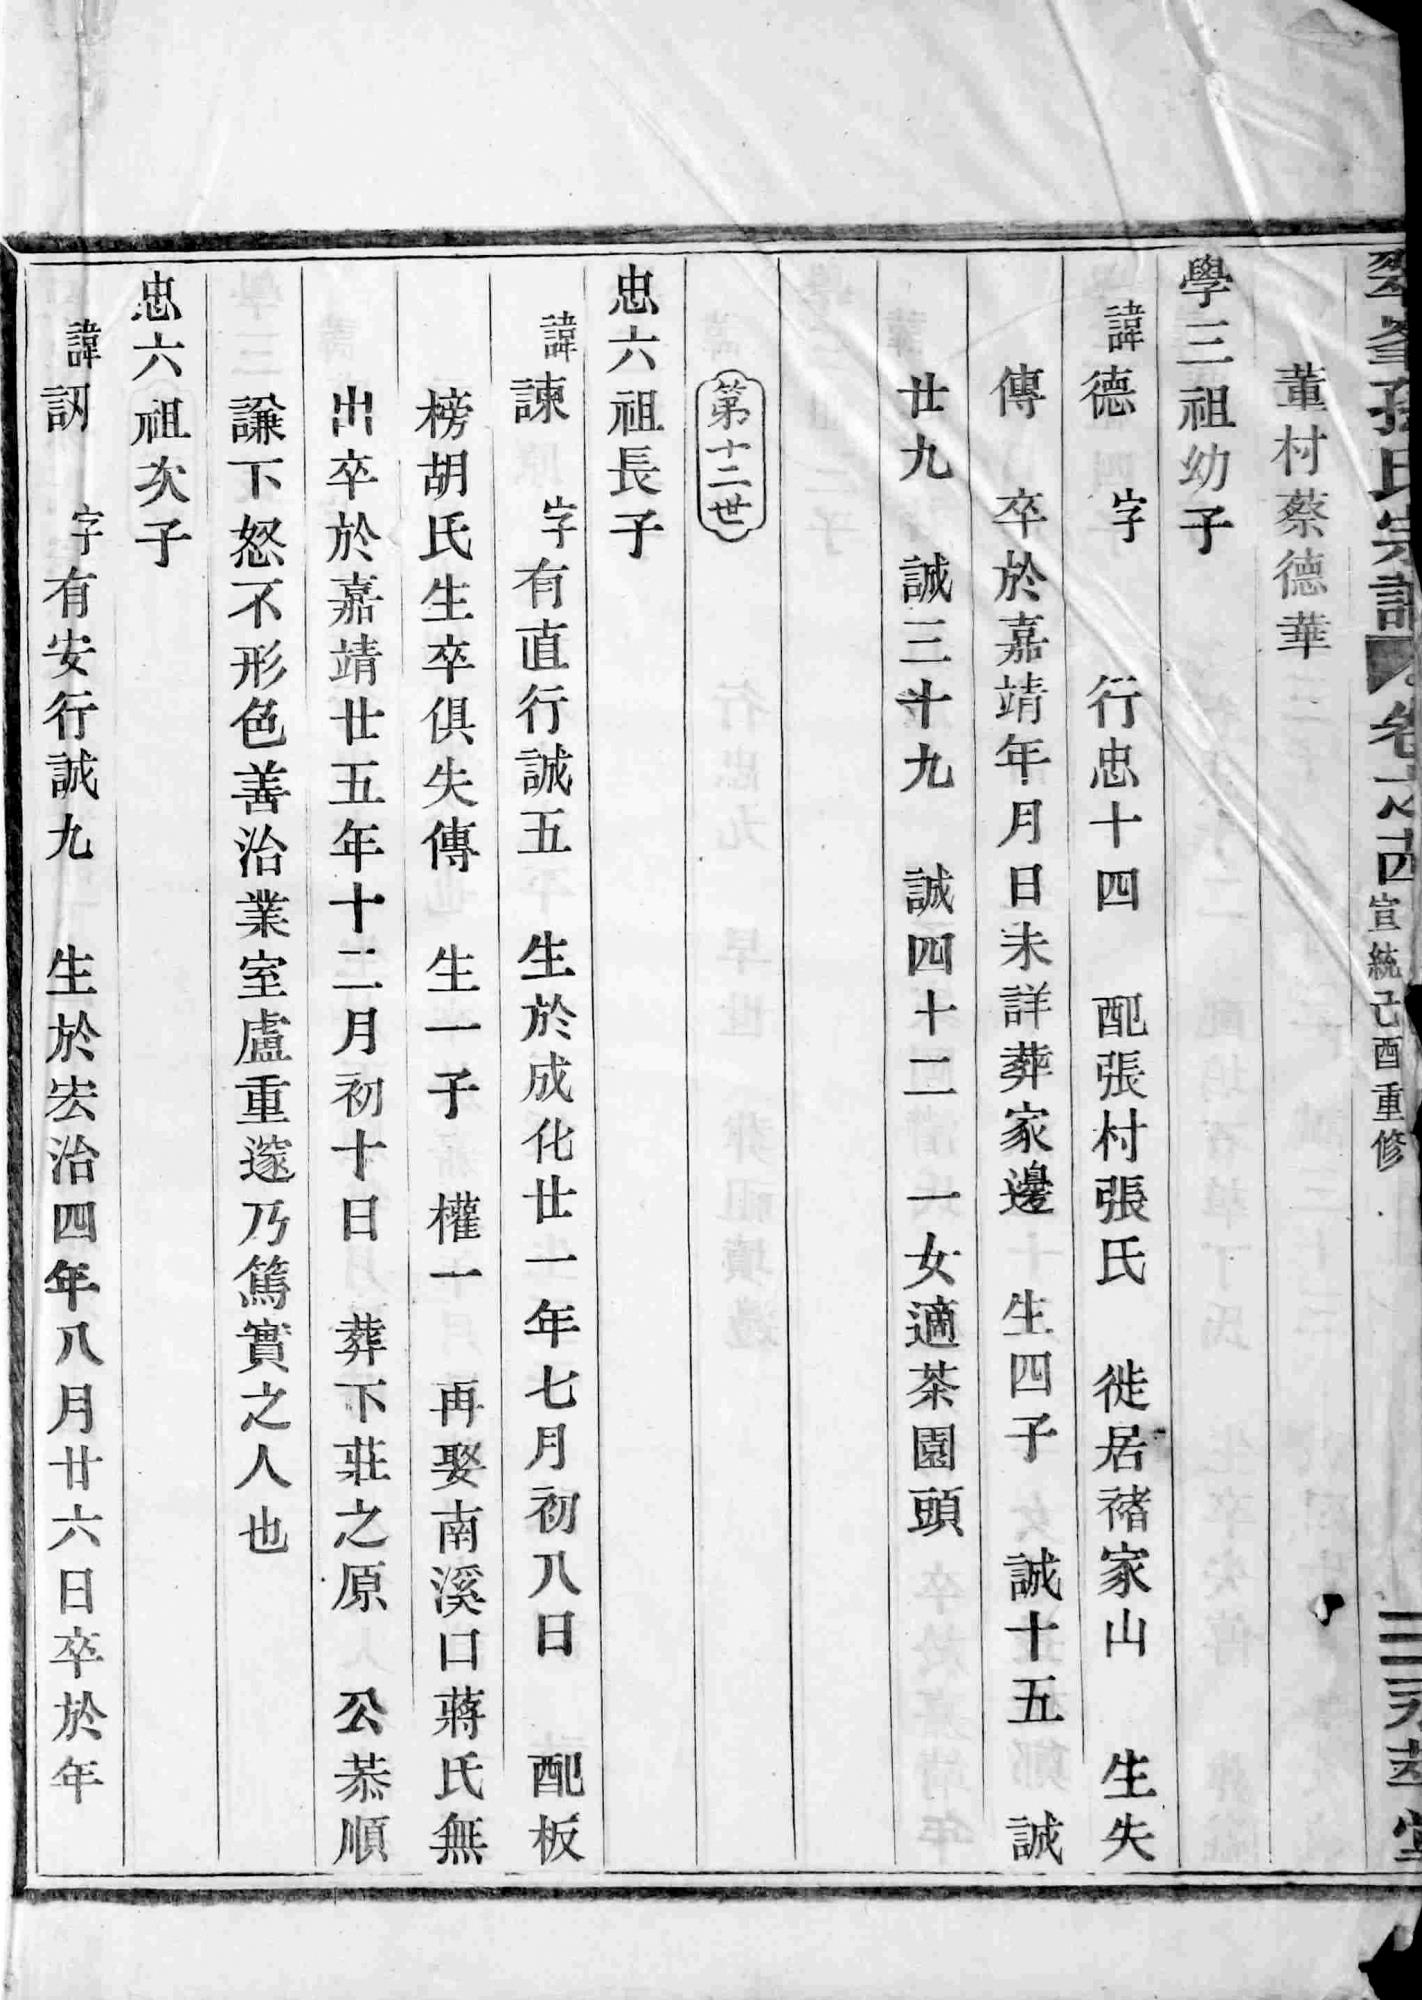 孫氏宗譜 卷之四 宣統己酉重修 三
董村蔡德華
學三祖幼子
諱德 字 行忠十四 配張村張氏 徙居禇家山 生失
傳 卒於嘉靖年月日未詳葬家邊 生四子 誠十五 誠
廿九 誠三十九 誠四十二 一女適茶園頭
第十二世
忠六祖長子
諱諫 字有直行誠五 生於成化廿一年七月初八日 配板
榜胡氏生卒俱失傳 生一子 權一 再娶南溪口蔣氏無
出卒於嘉靖廿五年十二月初十日 葬下莊之原 公恭順
謙下怒不形色善治業室廬重邃乃篤實之人也
忠六祖次子
諱訒 字有安行誠九 生於宏治四年八月廿六日卒於年